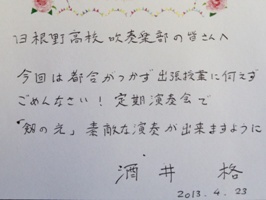 日根野高校 吹奏楽部の皆さんへ
今回は都合がつかず出張授業に伺えず
ごめんなさい！定期演奏会で
「剱の光」素敵な演奏が出来ますように
酒井 格
2013.4.23